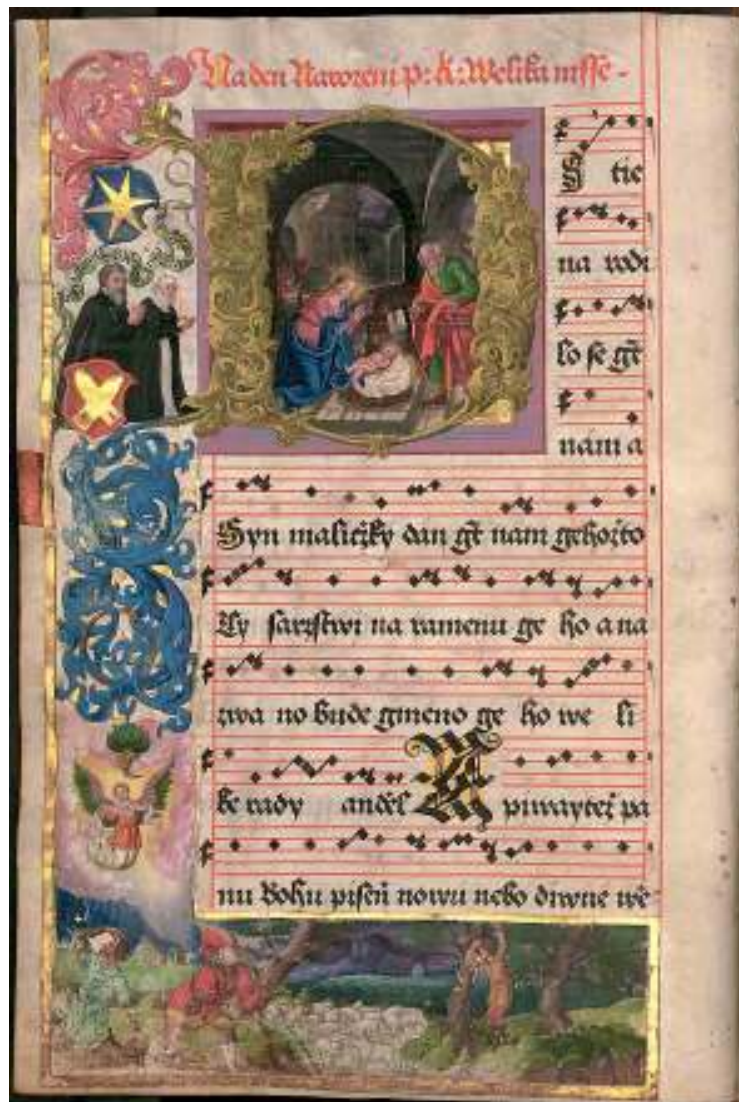 Na den Narozeni p: K: Welika msse
tie
na rodi
lo se gt
nám a
Syn maliczky dan gt nam gehozto
zy sarzstwi na ramenu ge ho a na
zwa no bude gmeno ge ho we li
ke rady andel zpiwaytez pa
nu Bohu piseň nowu nebo diwne wě